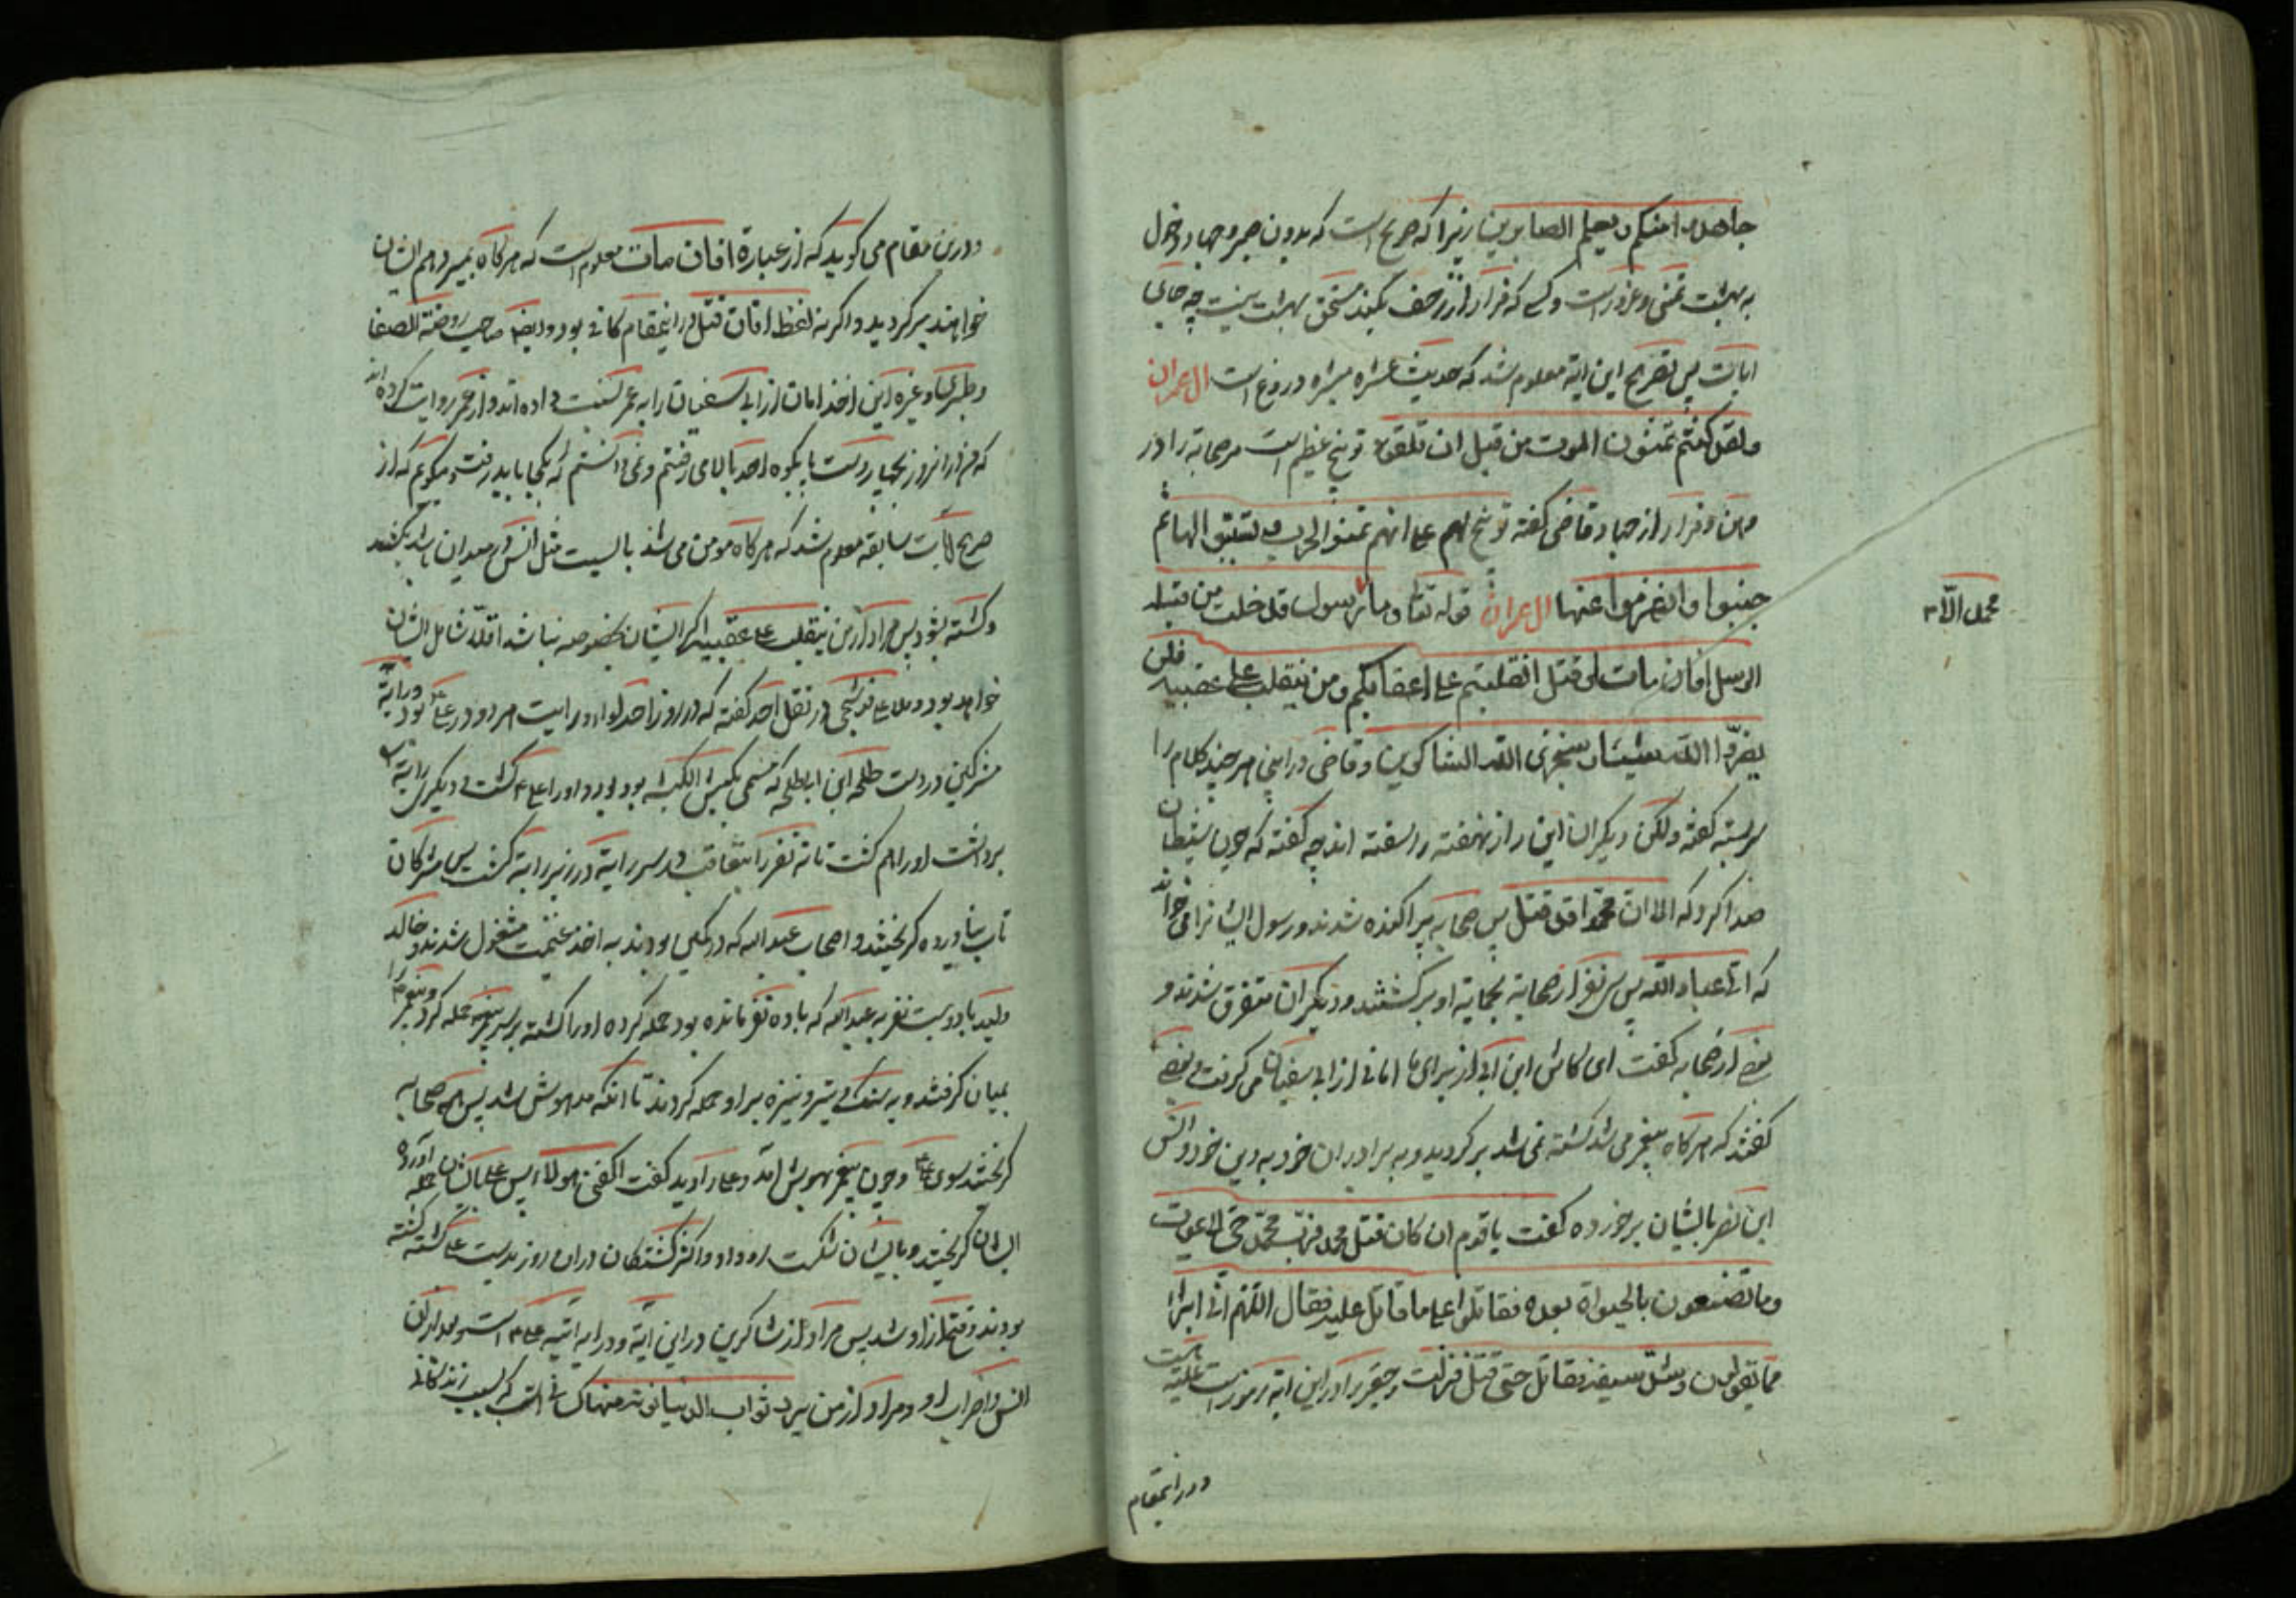 جاهدوا منکم و یعلم الصابرین زیرا که صریح است که بدون صبر و جهاد دخول
به بهشت تمنی و غرور است و کسی که فرار از زحف بکند مستحق بهشت نیست چه جای
اثبات پس بتصریح این ایة معلوم شد که حدیث عشره مبشره دروغ است ال عمران
ولقد کنتم تمنون الموت من قبل ان تلقوه توبیخ عظیم است مر صحابه را در
وهن و فرار از جهاد قاضی کفته توبیخ لهم علی انهم تمنوا الحرب و تسببوا لها ثم
جبنوا و انهزموا عنها ال عمران قوله تعا و ما رسول قد خلت من قبله
محمد الّا
الرسل افان مات او قتل انقلبتم علی اعقابکم و من ینقلب علی عقبیه فلن
یضرّوا اللّه شیئا و سیجزی اللّه الشاکرین و قاضی در اینجا هر چند کلام را
سربسته کفته ولکن دیکران این راز نهفته را سفته اند چه کفته که چون شیطان
صدا کرد که الا ان محمدا قد قتل پس صحابه پراکنده شدند و رسول ایشانرا می خواند
که الیّ عباد اللّه پس سی نفر از صحابة بحمایة او برکشتند و دیکران متفرق شدند و
بعضی از صحابه کفت ای کاش ابن ابی از برای ما امانی از ابی سفیان می کرفت و بعضی
کفتند که هرکاه پیغمبر می شد کشته نمی شد برکردید و به برادران خود به دین خود و انس
ابن نضر بایشان برخورده کفت یا قوم ان کان قتل محمد فربّ محمّد حیّ لا یموت
و ما تصنعون بالحیواة بعده فقاتلوا علی ما قاتل علیه فقال اللّهم انّی ابرأ
مما یقولون و سلّ سیفه فقاتل حتی قتل فنزلت و حقیر را در این ایة رموز است
در اینمقام
و درین مقام می کوید که از عبارة افان مات معلوم است که هرکاه بمیرد هم ایشان
خواهند برکردید و اکر نه لفظ افان قتل در اینمقام کافی بود و ایضا صاحب روضة الصفا
و طبری و غیره این اخذ امان از ابی سفیان را به عمر نسبت داده اند و از عمر روایت کرده اند
که فرار انروز بکوه احد بالا می رفتم و نمی دانستم که بکجا باید رفت و میکویم که از
صریح آیات سابقه معلوم شد که هرکاه مومن می شد بایست مثل انس در میدان باشد بکشد
و کشته شود پس مراد از من ینقلب علی عقبیه اکر ایشان بخصوصه نباشد اقلّا شامل ایشان
خواهد بود و ملا علی قوشچی در نقل احد کفته که در روز احد لواء و رایت هر دو در علی بود و رایة
مشرکین در دست طلحة ابن ابی طلحه که مسمی بکبش الکتیبه بود بود و او را علی کشت و دیکری رایة
برداشت او را هم کشت تا نه نفر را متعاقب در سر رایة در زیر رایة کشت پس مشرکان
تاب نیاورده کریختند و اصحاب عبد الله که در کمین بودند به اخذ غنیمت مشغول شدند و خالد
ولید با دویست نفر به عبد الله که با ده نفر مانده بود حمله کرده او را کشته بر سر پیغمبر حمله کرد و پیغمبر را
بمیان کرفتند و به سنک و تیر و نیزه بر او حمله کردند تا انکه مدهوش شد پس همه صحابه
کریختند سوی علی و چون پیغمبر بهوش آمد و علی را دید کفت اکفنی هؤلاء پس علی بایشان حمله آورده
ایشان کریختند و بایشان شکست رو داد و اکثر کشتکان در ان روز بدست علی کشته کشته
بودند و فتح از او شد پس مراد از شاکرین در این آیة و در ایة اتیه علی است و بعد از ان
انس و اضراب او و مراد از من یرد ثواب الدنیا نؤته منها کسانی است که بسبب زندکانی